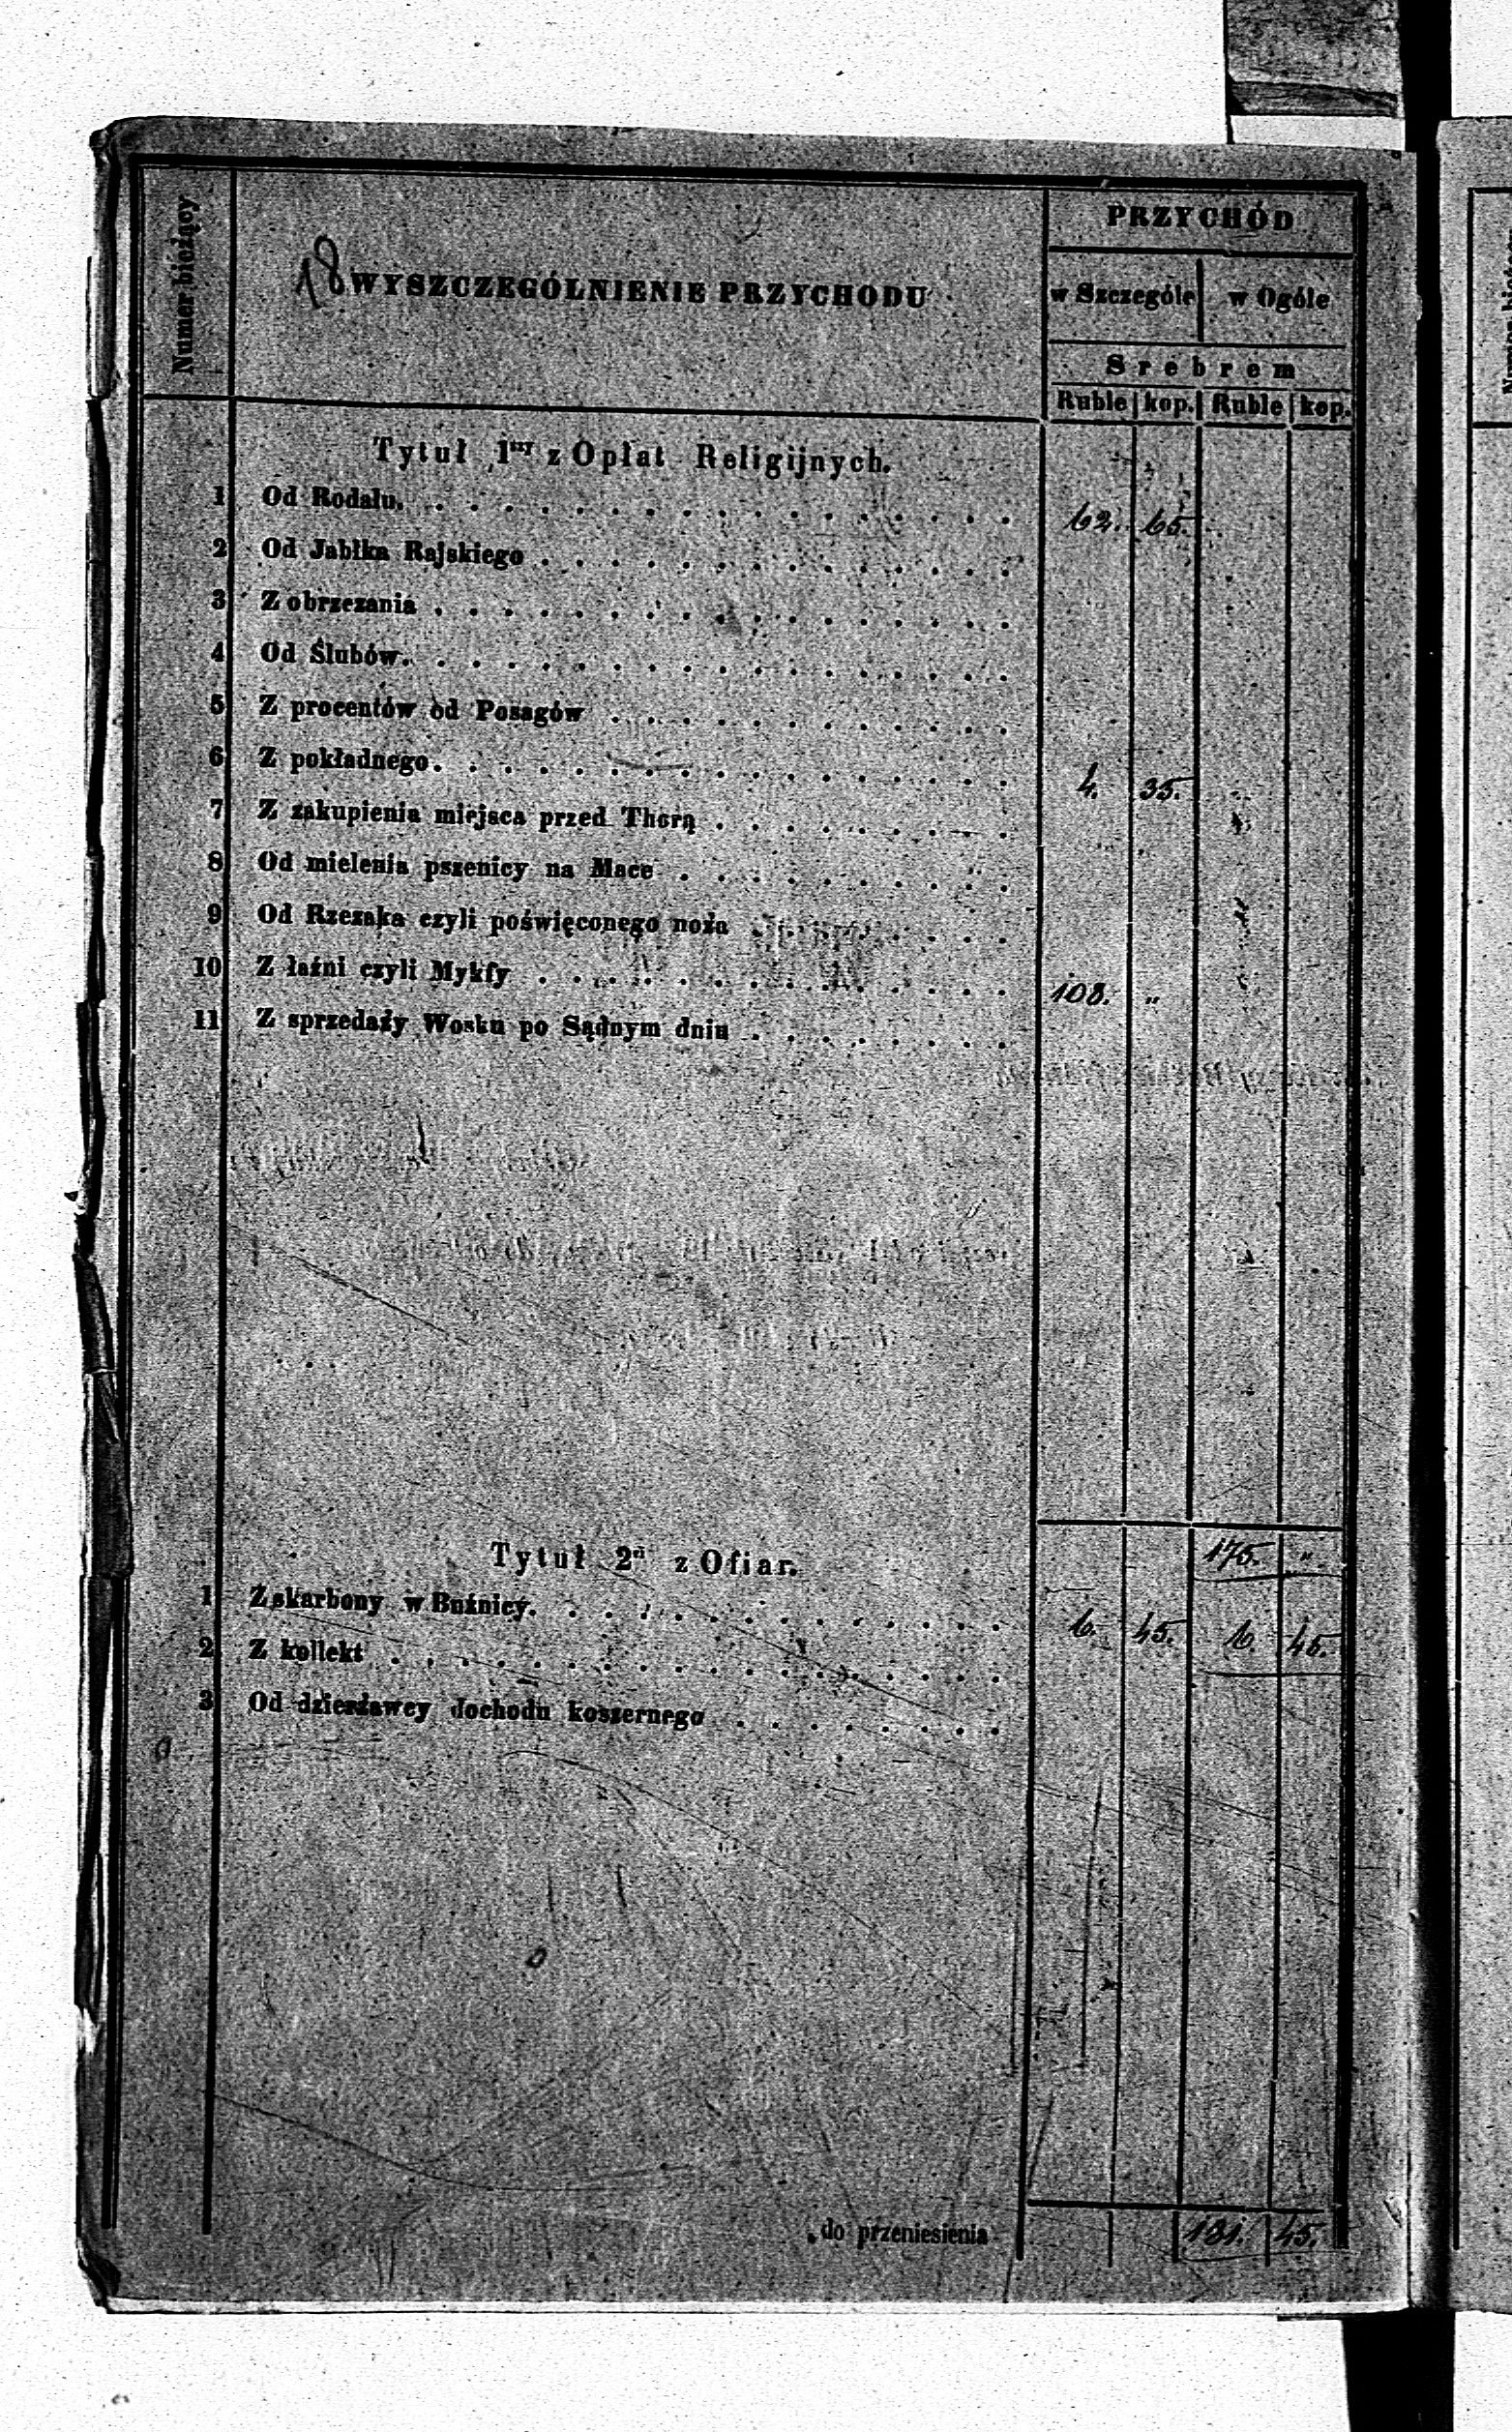 Numer bieżący
18 WYSZCZEGÓLNIENIE PRZYCHODU
PRZYCHÓD
w Szczególe w Ogóle
Srebrem
Ruble kop. Ruble kop.
Tytuł 1szy z Opłat Religijnych.
1 Od Rodału. 62. 65.
2 Od Jabłka Rajskiego
3 Z obrzezania
4 Od Ślubów.
5 Z procentów od Posagów
6 Z pokładnego. 4. 35.
7 Z zakupienia miejsca przed Thorą
8 Od mielenia pszenicy na Mace
9 Od Rzezaka czyli poświęconego noża
10 Z łaźni czyli Mykfy 108. "
11 Z sprzedaży Wosku po Sądnym dniu
175. "
Tytuł 2gi z Ofiar.
1 Z skarbony w Buźnicy. 6. 45. 6 45.
2 Z kollekt
3 Od dzierżawcy dochodu koszernego
do przeniesienia 181. 45.